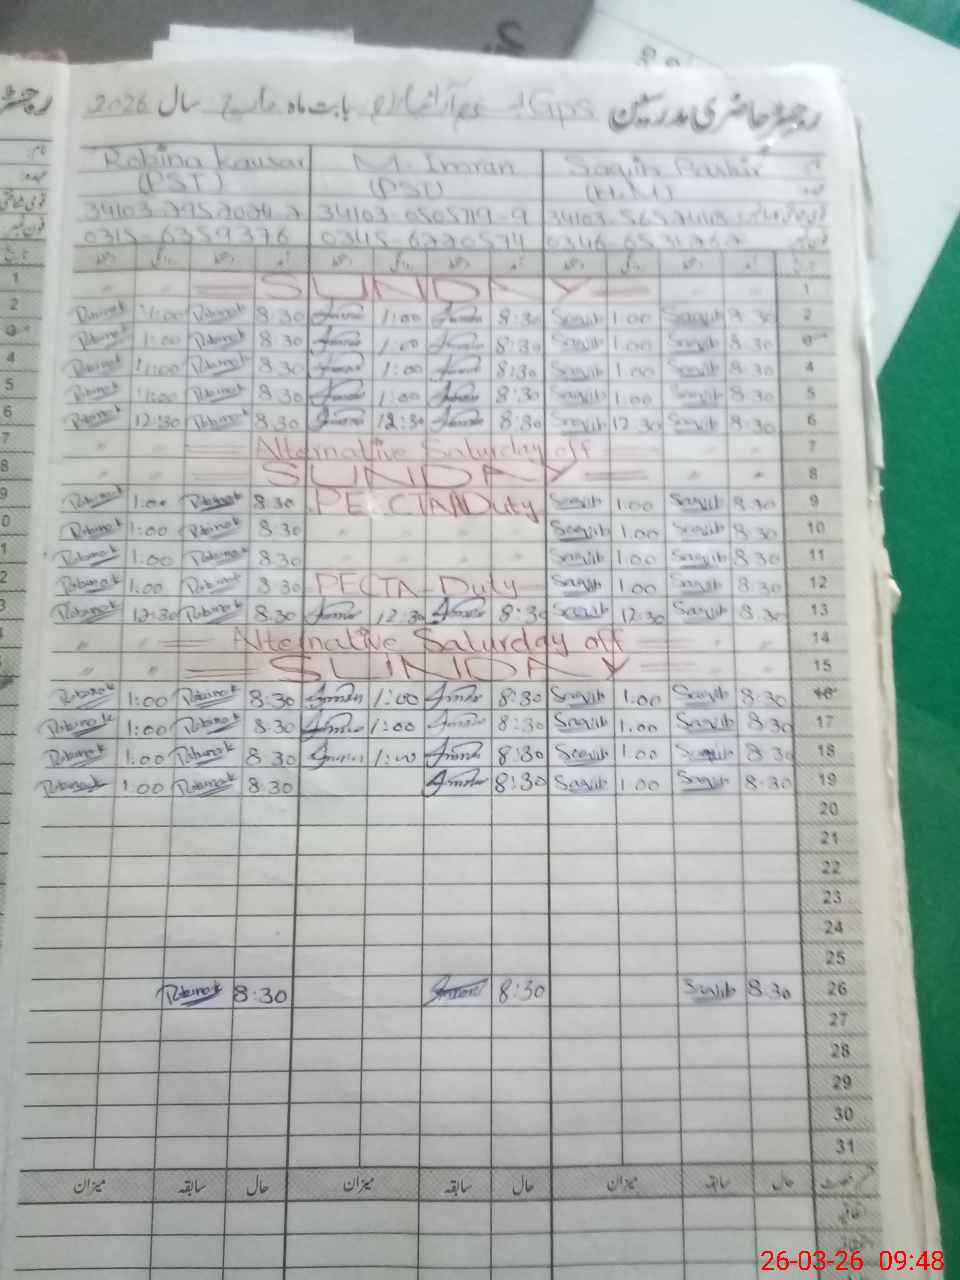 رجسٹر حاضری مدرسین GPS بابت ماہ مارچ سال 2026
Robina Kausar M. Imran Saqib Bashir
(PST) (PST) (H.M)
34103 0505719-9
0315-6359376 0345-6220574
1 = SUNDAY = 1
2 Robinak 1:00 Robinak 8:30 Imran 1:00 Imran 8:30 Saqib 1.00 Saqib 8.30 2
Robinak 1:00 Robinak 8:30 Imran 1:00 Imran 8:30 Saqib 1.00 Saqib 8.30
4 Robinak 1:00 Robinak 8:30 Imran 1:00 Imran 8:30 Saqib 1.00 Saqib 8.30 4
5 Robinak 1:00 Robinak 8:30 Imran 1:00 Imran 8:30 Saqib 1.00 Saqib 8.30 5
6 Robinak 12:30 Robinak 8.30 Imran 12:30 Imran 8:30 Saqib 12.30 Saqib 8.30 6
7 = Alternative Saturday off 7
8 = SUNDAY = 8
9 Robinak 1.00 Robinak 8.30 PECTA Duty Saqib 1.00 Saqib 8.30 9
0 Robinak 1:00 Robinak 8:30 " " " " Saqib 1.00 Saqib 8.30 10
1 Robinak 1:00 Robinak 8:30 " " " " Saqib 1.00 Saqib 8.30 11
2 Robinak 1:00 Robinak 8:30 PECTA Duty Saqib 1.00 Saqib 8.30 12
3 Robinak 12:30 Robinak 8.30 Imran 12:30 Imran 8:30 Saqib 12.30 Saqib 8.30 13
= Alternative Saturday off = 14
= SUNDAY = 15
Robinak 1:00 Robinak 8:30 Imran 1:00 Imran 8:30 Saqib 1.00 Saqib 8.30 16
Robinak 1:00 Robinak 8:30 Imran 1:00 Imran 8:30 Saqib 1.00 Saqib 8.30 17
Robinak 1:00 Robinak 8.30 Imran 1:00 Imran 8:30 Saqib 1.00 Saqib 8.30 18
Robinak 1:00 Robinak 8.30 Imran 8:30 Saqib 1.00 Saqib 8.30 19
20
21
22
23
24
25
Robinak 8:30 Imran 8:30 Saqib 8.30 26
27
28
29
30
31
حال سابقہ میزان حال سابقہ میزان حال سابقہ میزان
26-03-26 09:48